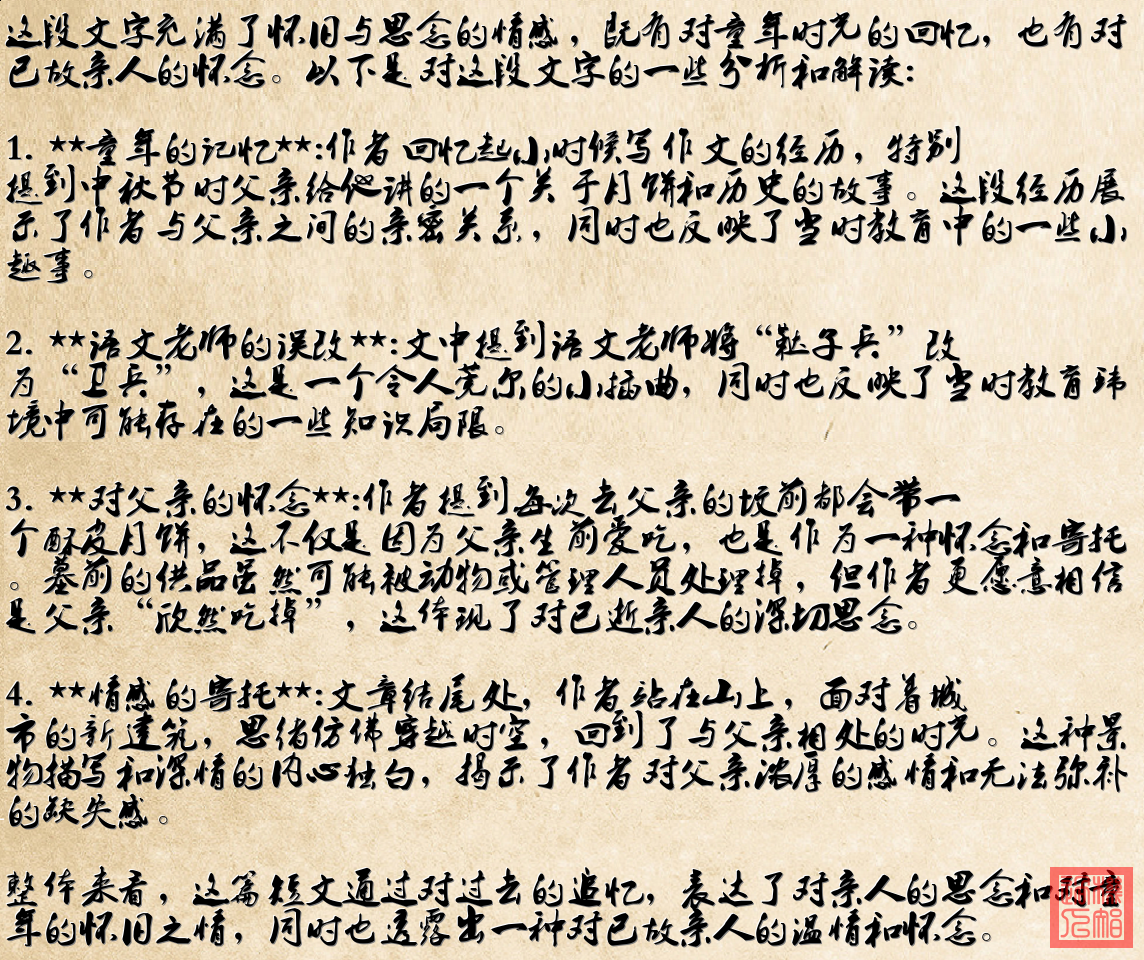 这段文字充满了怀旧与思念的情感，既有对童年时光的回忆，也有对
已故亲人的怀念。以下是对这段文字的一些分析和解读：
1. **童年的记忆**:作者回忆起小时候写作文的经历，特别
提到中秋节时父亲给他讲的一个关于月饼和历史的故事。这段经历展
示了作者与父亲之间的亲密关系，同时也反映了当时教育中的一些小
趣事。
2. **语文老师的误改**:文中提到语文老师将“鞑子兵”改
为“卫兵”，这是一个令人莞尔的小插曲，同时也反映了当时教育环
境中可能存在的一些知识局限。
3. **对父亲的怀念**:作者提到每次去父亲的坟前都会带一
个酥皮月饼，这不仅是因为父亲生前爱吃，也是作为一种怀念和寄托
。墓前的供品虽然可能被动物或管理人员处理掉，但作者更愿意相信
是父亲“欣然吃掉”，这体现了对已逝亲人的深切思念。
4. **情感的寄托**:文章结尾处，作者站在山上，面对着城
市的新建筑，思绪仿佛穿越时空，回到了与父亲相处的时光。这种景
物描写和深情的内心独白，揭示了作者对父亲浓厚的感情和无法弥补
的缺失感。
整体来看，这篇短文通过对过去的追忆，表达了对亲人的思念和对童
年的怀旧之情，同时也透露出一种对已故亲人的温情和怀念。